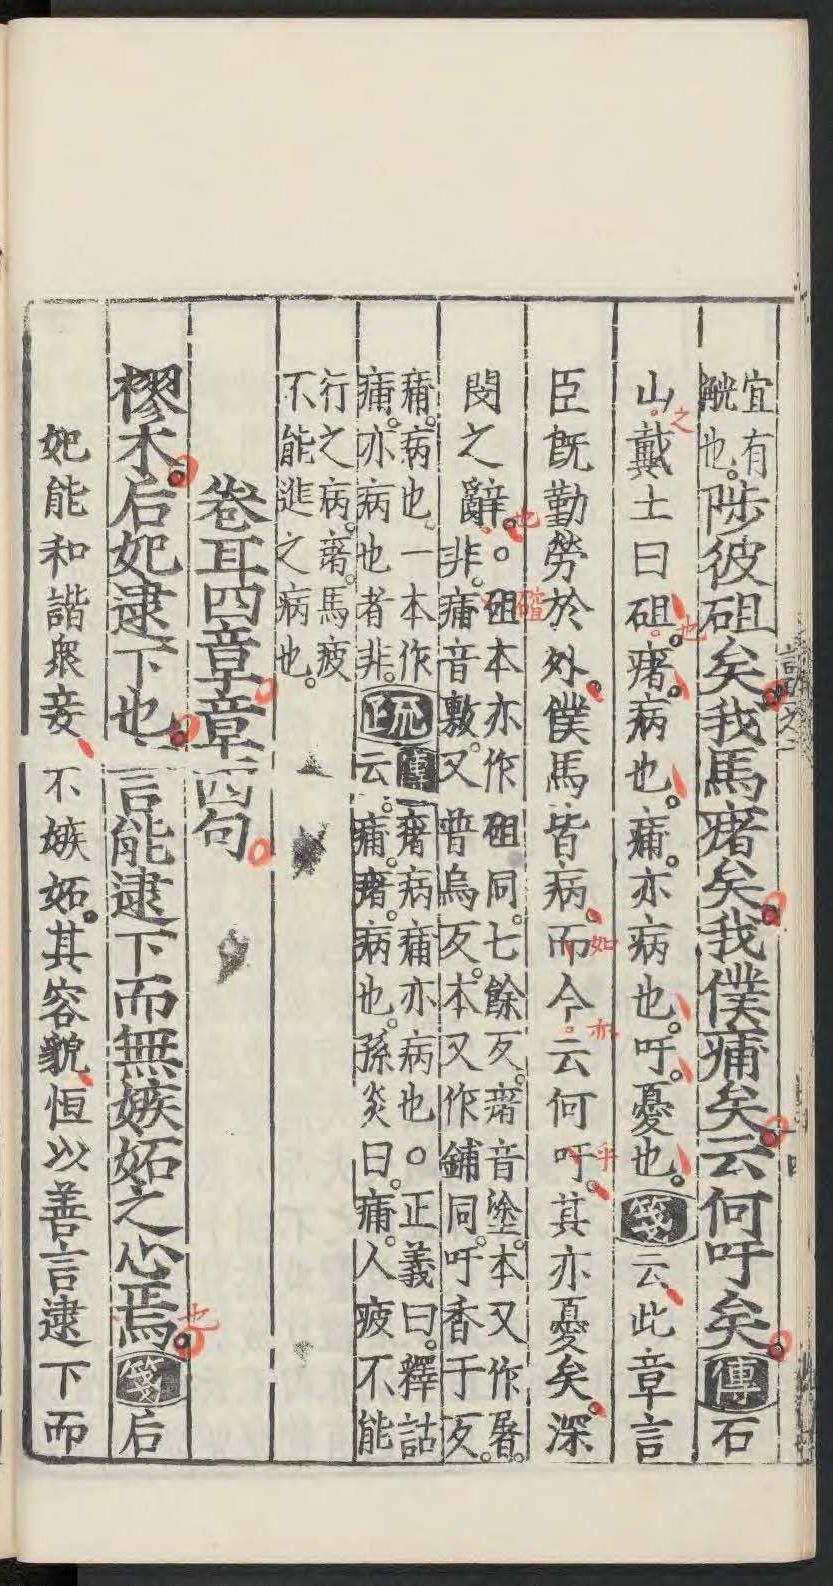 宜有
觥也。陟彼砠矣我馬瘏矣我僕痡矣云何吁矣。傳石
山戴土曰砠。瘏。病也。痡。亦病也。吁。憂也。箋云此章言
之也
臣旣勤勞於外。僕馬皆病。而今云何吁。其亦憂矣。深
如亦乎
閔之辭。○砠本亦作砠同。七餘反。瘏音塗。本又作屠。
也碏
非。痡音敷。又普烏反。本又作鋪同。吁香于反。
痡。病也。一本作
痡。亦病也者非。
疏傳瘏病痡亦病也○正義曰。釋詁
正云。痡。瘏。病也。孫炎曰。痡。人疲不能
行之病。瘏。馬疲
不能進之病也。
卷耳四章章四句
樛木。后妃逮下也。言能逮下而無嫉妬之心焉。箋后
也
妃能和諧衆妾、不嫉妬。其容貌、恒以善言逮下而